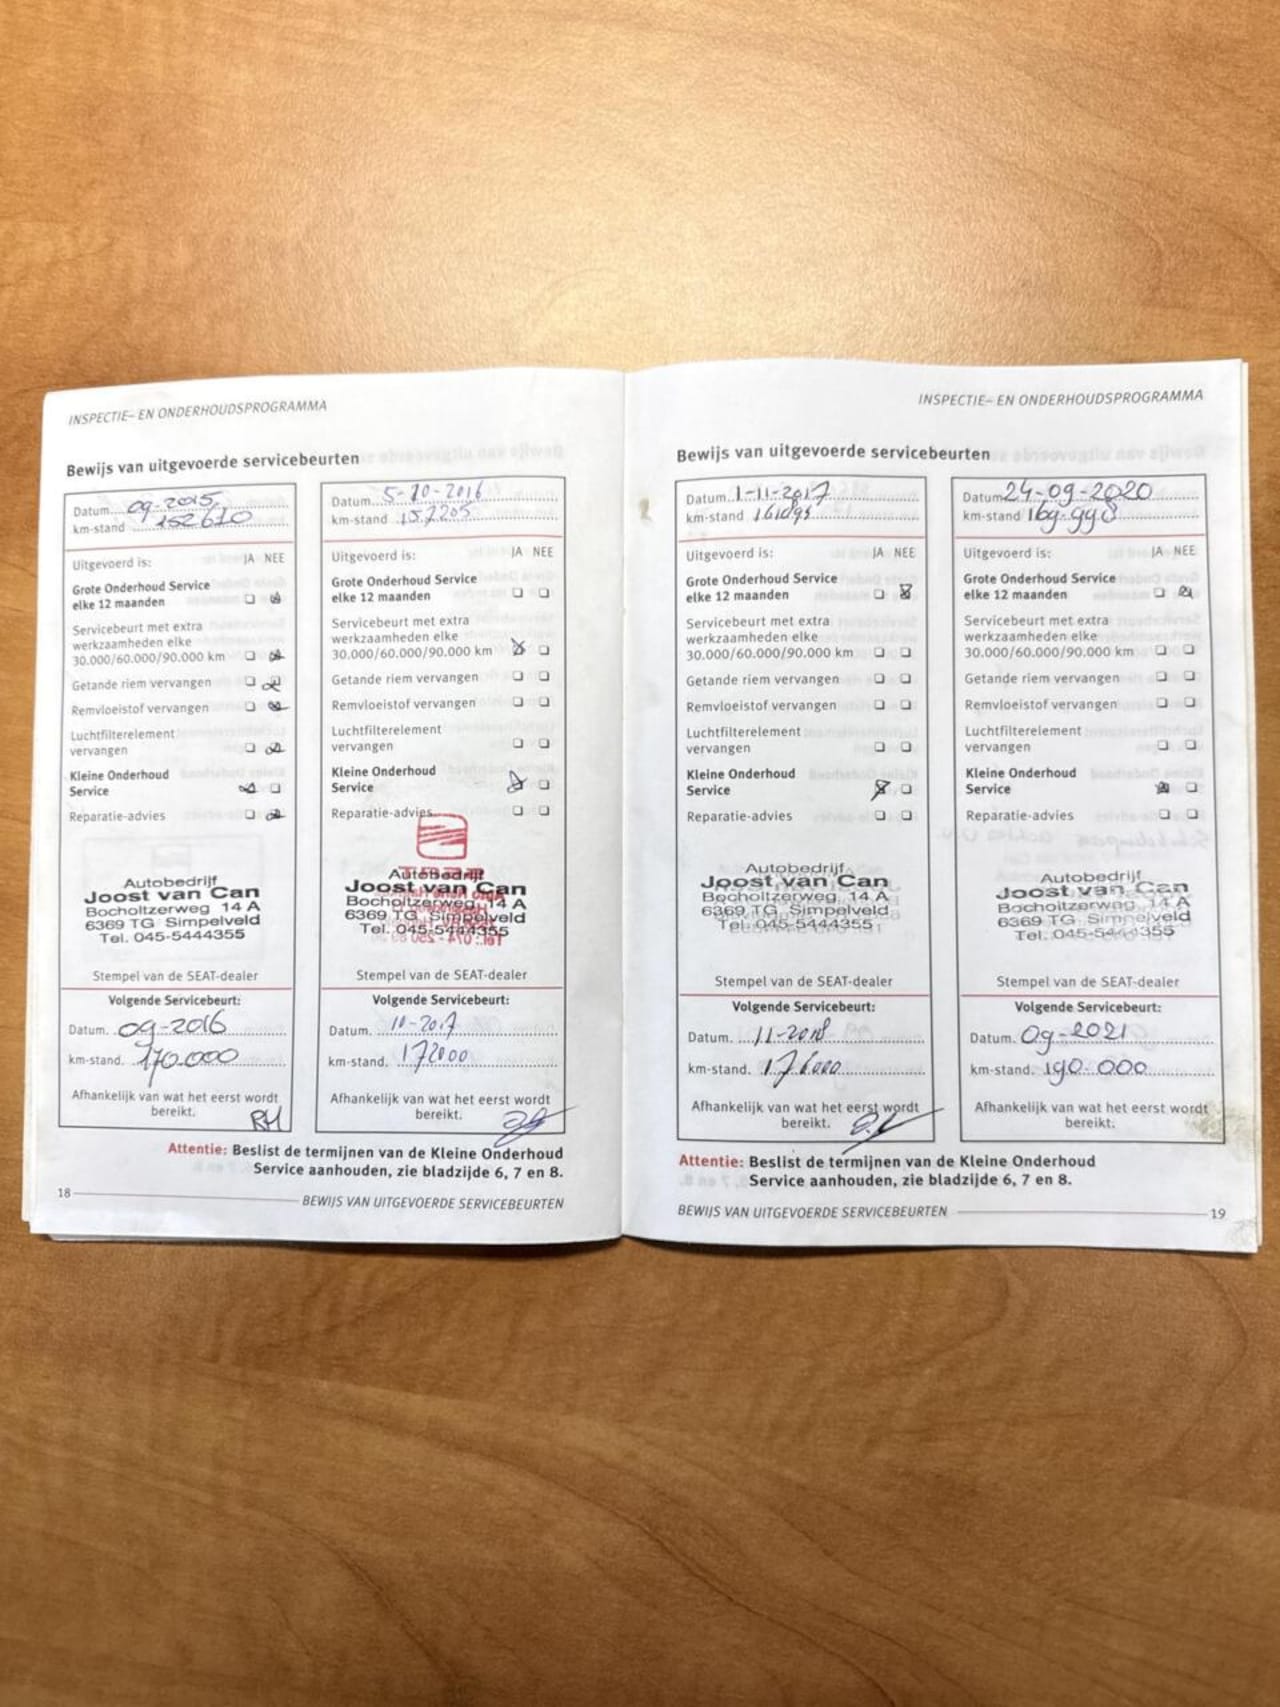 INSPECTIE- EN ONDERHOUDSPROGRAMMA
Bewijs van uitgevoerde servicebeurten
Datum. 09-2015
km-stand 152610
Uitgevoerd is: JA NEE
Grote Onderhoud Service
elke 12 maanden
Servicebeurt met extra
werkzaamheden elke
30.000/60.000/90.000 km
Getande riem vervangen
Remvloeistof vervangen
Luchtfilterelement
vervangen
Kleine Onderhoud
Service
Reparatie-advies
Autobedrijf
Joost van Can
Bocholtzerweg 14 A
6369 TG Simpelveld
Tel. 045-5444355
Stempel van de SEAT-dealer
Volgende Servicebeurt:
Datum. 09-2016
km-stand. 170.000
Afhankelijk van wat het eerst wordt
bereikt.
RH
Datum. 5-10-2016
km-stand 157205
Uitgevoerd is: JA NEE
Grote Onderhoud Service
elke 12 maanden
Servicebeurt met extra
werkzaamheden elke
30.000/60.000/90.000 km
Getande riem vervangen
Remvloeistof vervangen
Luchtfilterelement
vervangen
Kleine Onderhoud
Service
Reparatie-advies
Autobedrijf
Joost van Can
Bocholtzerweg 14 A
6369 TG Simpelveld
Tel. 045-5444355
Stempel van de SEAT-dealer
Volgende Servicebeurt:
Datum. 10-2017
km-stand. 172000
Afhankelijk van wat het eerst wordt
bereikt.
Attentie: Beslist de termijnen van de Kleine Onderhoud
Service aanhouden, zie bladzijde 6, 7 en 8.
18 BEWIJS VAN UITGEVOERDE SERVICEBEURTEN
INSPECTIE- EN ONDERHOUDSPROGRAMMA
Bewijs van uitgevoerde servicebeurten
Datum. 1-11-2017
km-stand 161095
Uitgevoerd is: JA NEE
Grote Onderhoud Service
elke 12 maanden
Servicebeurt met extra
werkzaamheden elke
30.000/60.000/90.000 km
Getande riem vervangen
Remvloeistof vervangen
Luchtfilterelement
vervangen
Kleine Onderhoud
Service
Reparatie-advies
Autobedrijf
Joost van Can
Bocholtzerweg 14 A
6369 TG Simpelveld
Tel 045-5444355
Stempel van de SEAT-dealer
Volgende Servicebeurt:
Datum. 11-2018
km-stand. 176000
Afhankelijk van wat het eerst wordt
bereikt.
Datum 24-09-2020
km-stand 169.998
Uitgevoerd is: JA NEE
Grote Onderhoud Service
elke 12 maanden
Servicebeurt met extra
werkzaamheden elke
30.000/60.000/90.000 km
Getande riem vervangen
Remvloeistof vervangen
Luchtfilterelement
vervangen
Kleine Onderhoud
Service
Reparatie-advies
Autobedrijf
Joost van Can
Bocholtzerweg 14 A
6369 TG Simpelveld
Tel. 045-5444355
Stempel van de SEAT-dealer
Volgende Servicebeurt:
Datum. 09-2021
km-stand. 190.000
Afhankelijk van wat het eerst wordt
bereikt.
Attentie: Beslist de termijnen van de Kleine Onderhoud
Service aanhouden, zie bladzijde 6, 7 en 8.
BEWIJS VAN UITGEVOERDE SERVICEBEURTEN 19